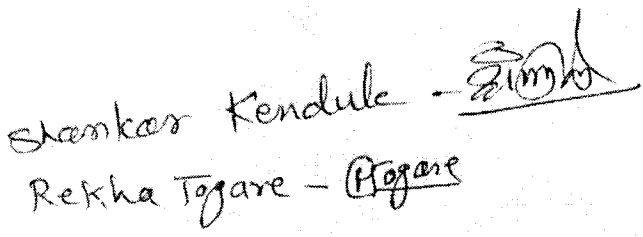 Shankar Kendule -
Rekha Togare - RTogare